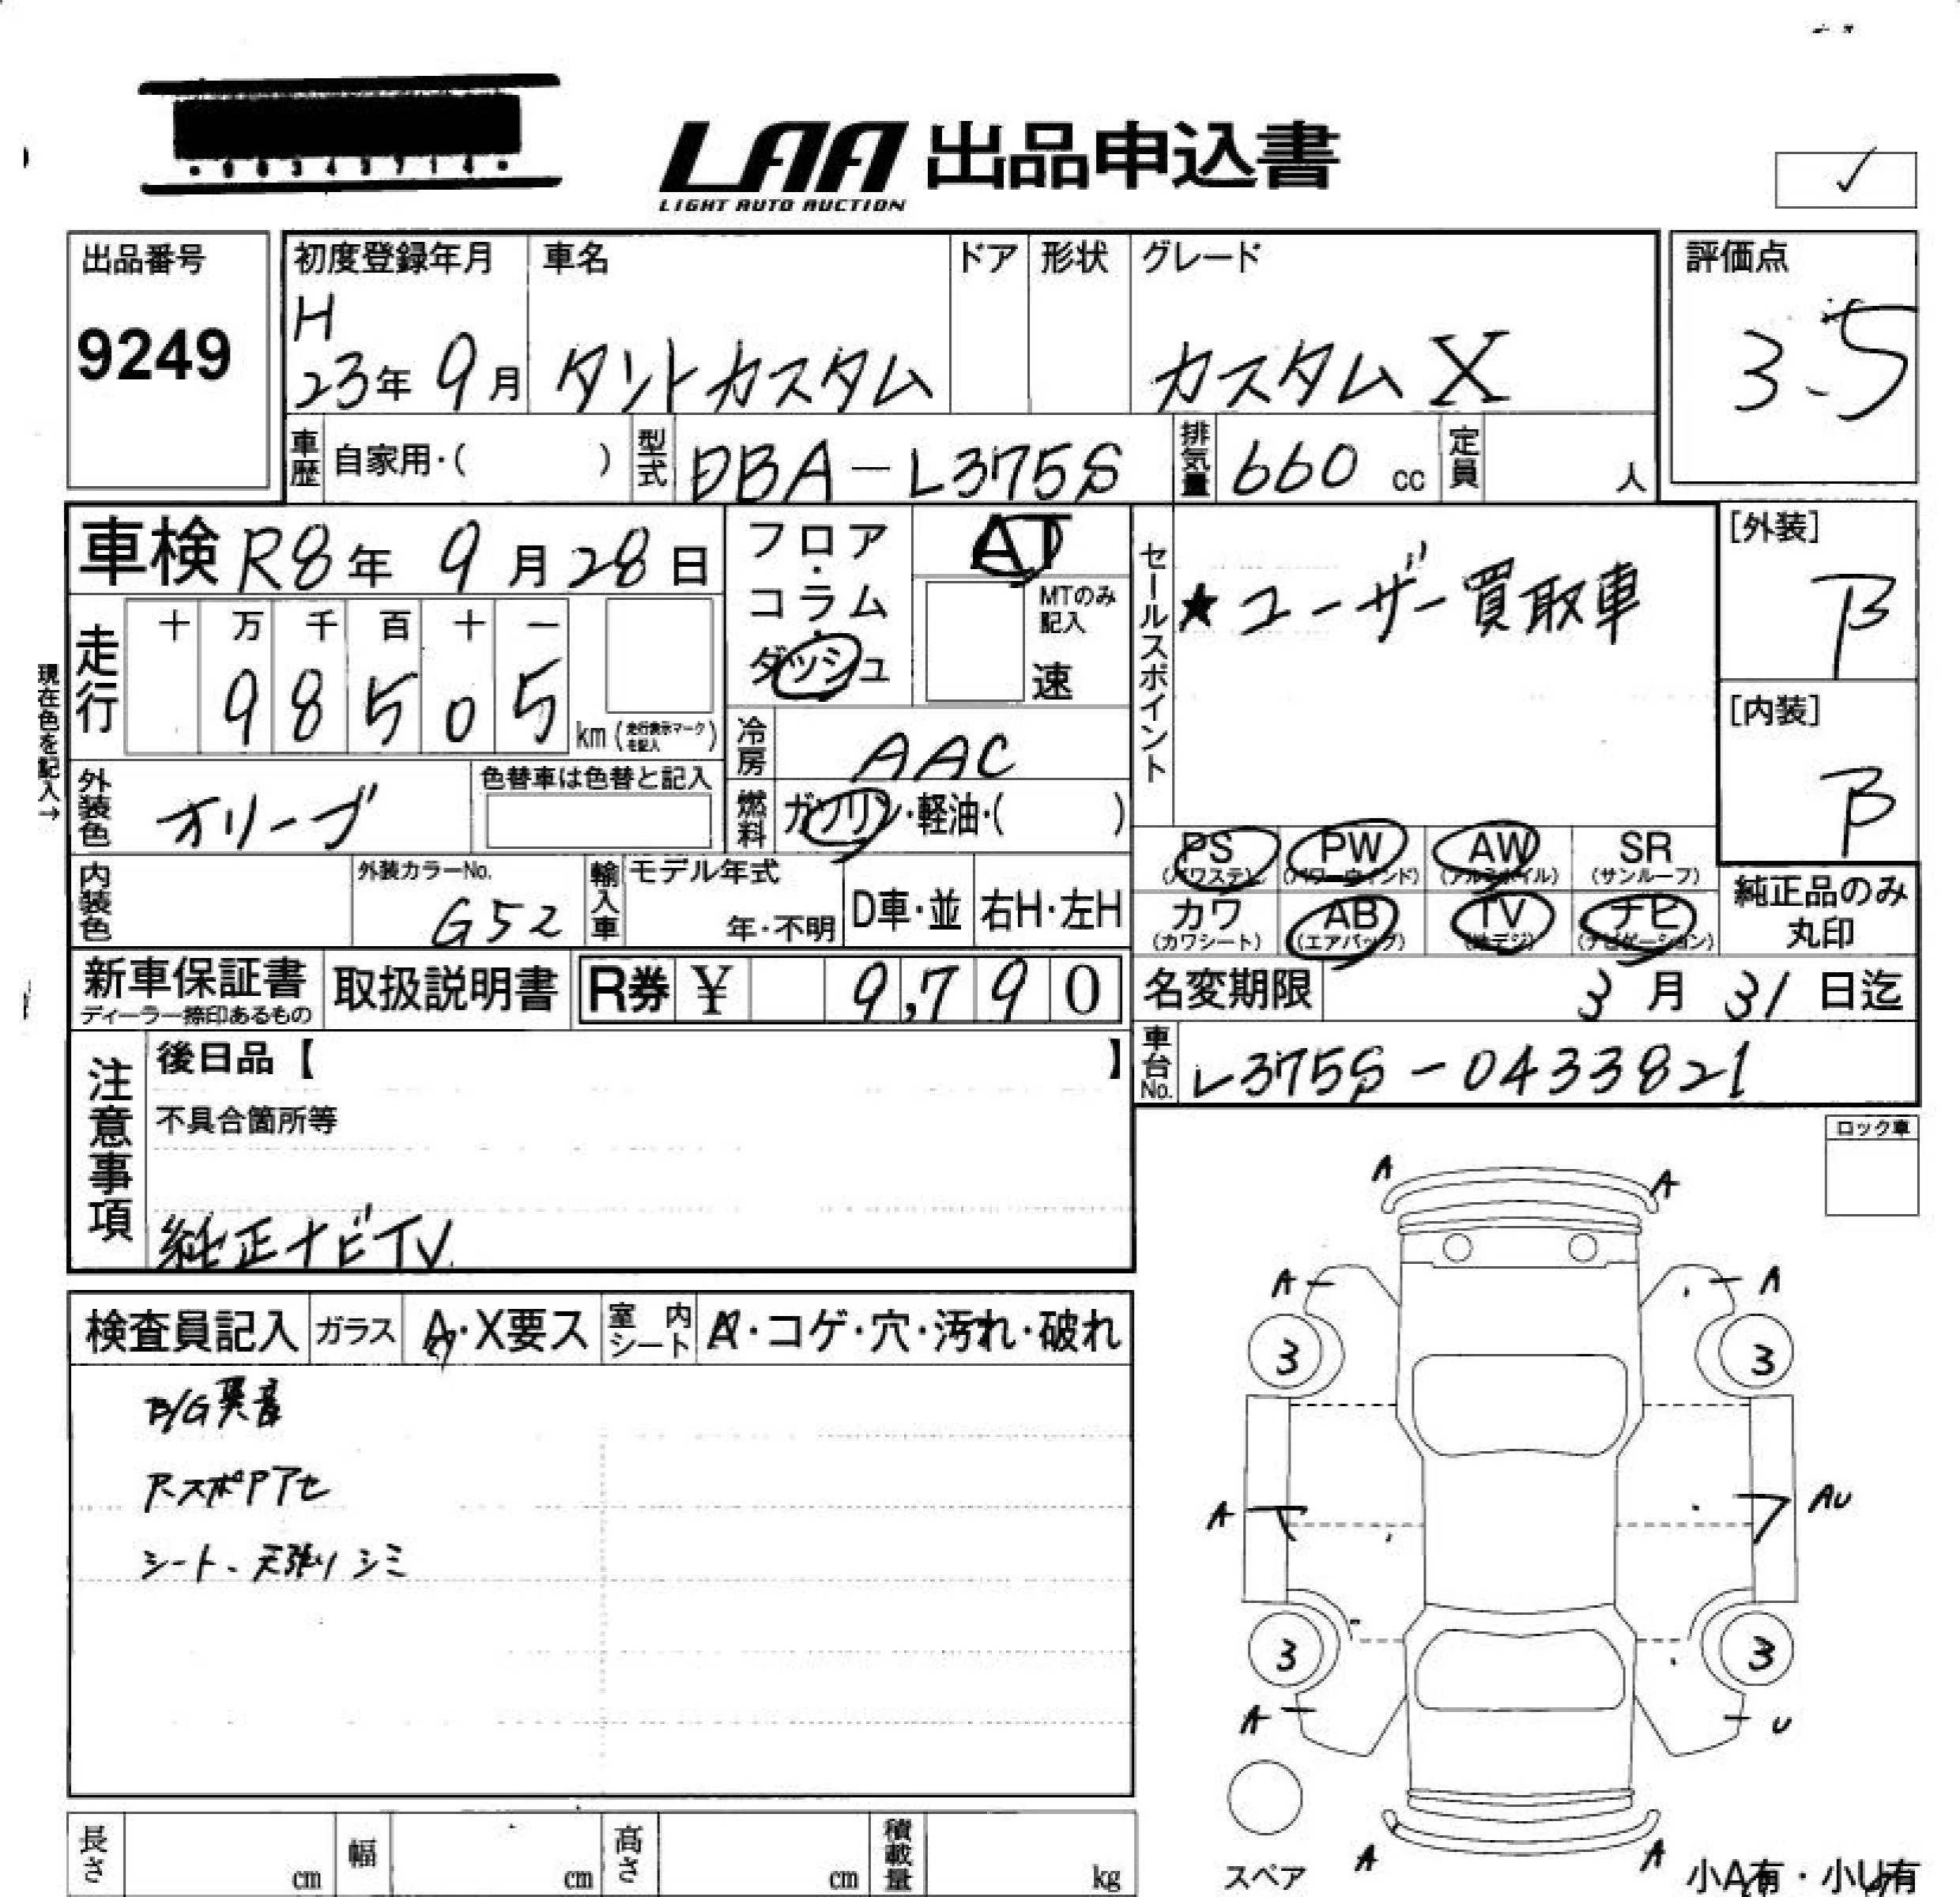 LAA 出品申込書
LIGHT AUTO AUCTION
出品番号
9249
初度登録年月
H
23年 9月
車名
タントカスタム
ドア
形状
グレード
カスタム X
評価点
3.5
車歴 自家用・( )
型式 DBA-L375S
排気量 660 cc
定員 人
車検 R8年 9月28日
現在色を記入→
走行
十 万 千 百 十 一
9 8 5 0 5
km (走行表示マークを記入)
フロア・コラム・ダッシュ
AT
MTのみ記入
速
冷房 AAC
燃料 ガソリン・軽油・( )
セールスポイント
★ユーザー買取車
[外装]
B
[内装]
B
外装色 オリーブ
色替車は色替と記入
内装色
外装カラーNo.
G52
輸入車
モデル年式
年・不明
D車・並
右H・左H
PS (パワステ)
PW (パワーウィンド)
AW (アルミホイル)
SR (サンルーフ)
カワ (カワシート)
AB (エアバッグ)
TV (地デジ)
ナビ (ナビゲーション)
純正品のみ
丸印
新車保証書
ディーラー捺印あるもの
取扱説明書
R券 ¥ 9,790
名変期限 3月 31日迄
車台No. L375S-0433821
注意事項
後日品【 】
不具合箇所等
純正ナビTV
ロック車
検査員記入
ガラス A・X要ス
室内シート A・コゲ・穴・汚れ・破れ
B/G異音
RスポPアセ
シート、天張りシミ
A A
A A
3 3
A AU
3 3
A U
A A
スペア
小A有・小U有
長さ cm
幅 cm
高さ cm
積載量 kg